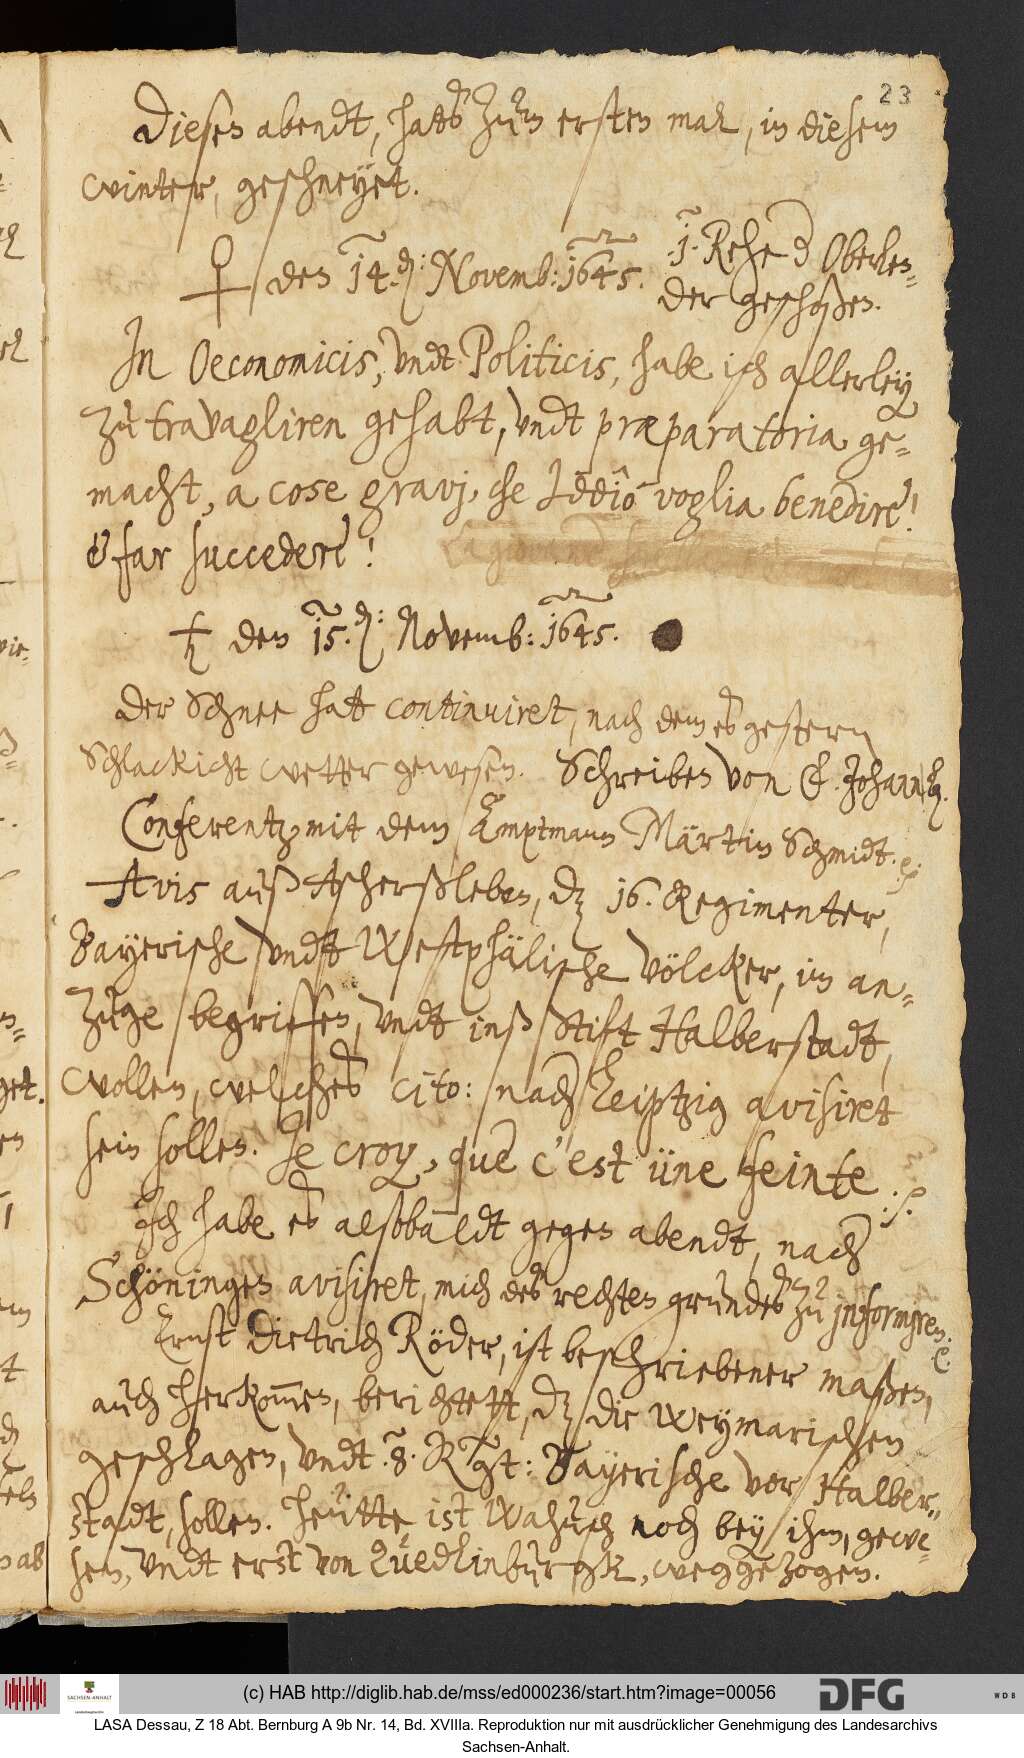 23
Diesen abendt, hatts zum ersten mal, in diesem
winter, geschneyet.
♀ den 14. Novemb: 1645.
1. Rehe d Oberlen-
der geschoßen.
In Oeconomicis, vndt Politicis, habe ich allerley
zu travagliren gehabt, vndt præparatoria ge-
macht, a cose gravj, che Iddiô voglia benedire!
& far succedere!
♄ den 15. Novemb: 1645.
Der Schnee hatt continuiret, nach dem es gestern
Schlackicht wetter gewesen. Schreiben von C. Johann
Conferentz mit dem Amptmann Märtin Schmidt. ./.
Avis auß Aschersleben, dz 16. Regimenter,
Bayerische vndt Westphälische völcker, im an-
zuge begriffen, vndt inß Stift Halberstadt,
wollen, welches cito: nach Leiptzig avisiret
sein sollen. Je croy, que c'est üne feinte ./.
Ich habe es alsobaldt gegen abendt, nach
Schöningen avisiret, mich des rechten grundes zu jnformiren.
Ernst Dietrich Röder, ist beschriebener maßen,
auch herkommen, berichtett, dz die Weymarischen
geschlagen, vndt 8. Rgt: Bayerische vor Halber-
stadt, sollen. Heutte, ist Wahuch noch bey ihm, gewe-
sen, vndt erst von Quedlinburgk, weggezogen.
(c) HAB http://diglib.hab.de/mss/ed000236/start.htm?image=00056
SACHSEN-ANHALT
DFG
WDB
LASA Dessau, Z 18 Abt. Bernburg A 9b Nr. 14, Bd. XVIIIa. Reproduktion nur mit ausdrücklicher Genehmigung des Landesarchivs
Sachsen-Anhalt.